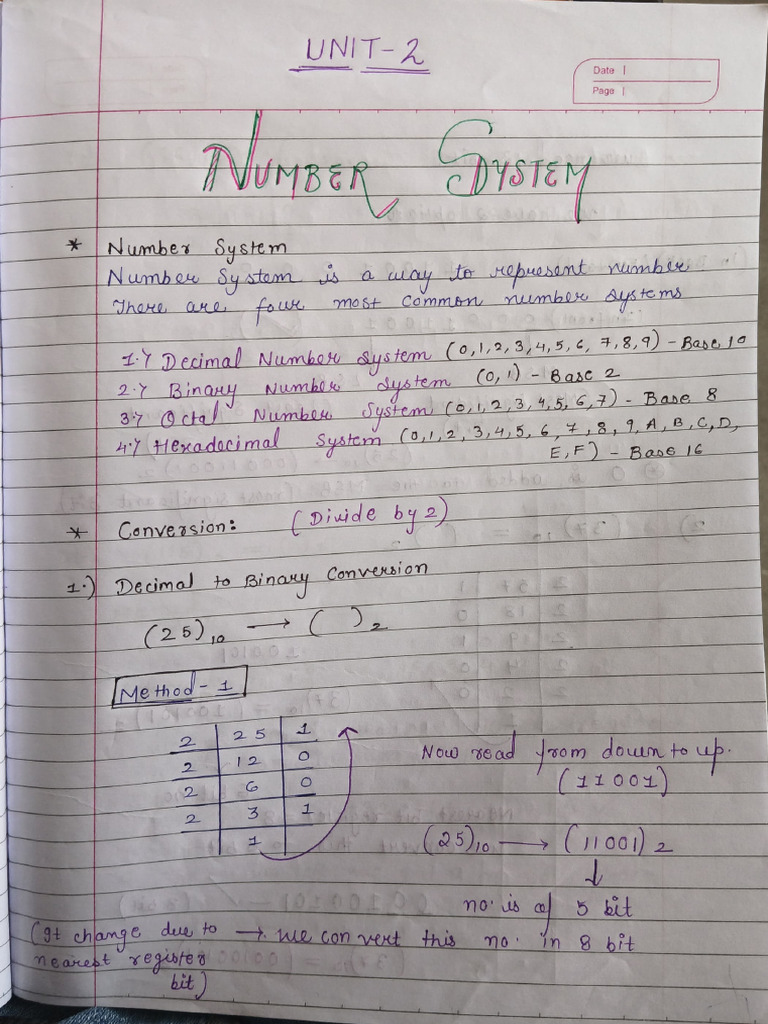 UNIT-2
Date |
Page |
NUMBER SYSTEM
* Number System
Number System is a way to represent number
There are four most common number systems
1.> Decimal Number System (0,1,2,3,4,5,6,7,8,9) - Base 10
2.> Binary Number System (0,1) - Base 2
3.> Octal Number System (0,1,2,3,4,5,6,7) - Base 8
4.> Hexadecimal System (0,1,2,3,4,5,6,7,8,9,A,B,C,D,
E,F) - Base 16
* Conversion: (Divide by 2)
1.) Decimal to Binary Conversion
(25)₁₀ → ( )₂
Method - 1
2 | 25 | 1
2 | 12 | 0
2 | 6 | 0
2 | 3 | 1
1
Now read from down to up.
(11001)
(25)₁₀ → (11001)₂
↓
no. is of 5 bit
(It change due to → we convert this no. in 8 bit
nearest register
bit)